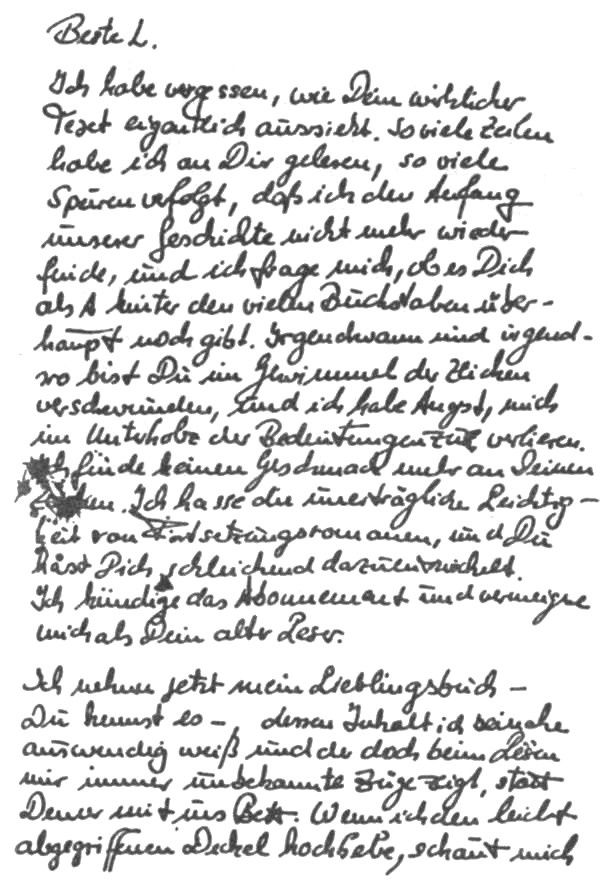 Beste L.
Ich habe vergessen, wie Dein wirklicher
Text eigentlich aussieht. So viele Zeilen
habe ich an Dir gelesen, so viele
Spuren verfolgt, daß ich den Anfang
unserer Geschichte nicht mehr wieder
finde, und ich frage mich, ob es Dich
als A hinter den vielen Buchstaben über-
haupt noch gibt. Irgendwann und irgend-
wo bist Du im Gewimmel der Zeichen
verschwunden, und ich habe Angst, mich
im Unterholz der Bedeutungen zu verlieren.
Ich finde keinen Geschmack mehr an Deinen
Ich hasse die unerträgliche Leichtig-
keit von Fortsetzungsromanen, und Du
hast Dich schleichend dazu entwickelt.
Ich kündige das Abonnement und verneige
mich als Dein alter Leser.
Ich nehme jetzt mein Lieblingsbuch –
Du kennst es –, dessen Inhalt ich beinahe
auswendig weiß und der doch beim Lesen
mir immer unbekannte Züge zeigt, statt
Deiner mit ins Bett. Wenn ich den leicht
abgegriffenen Deckel hochhebe, schaut mich